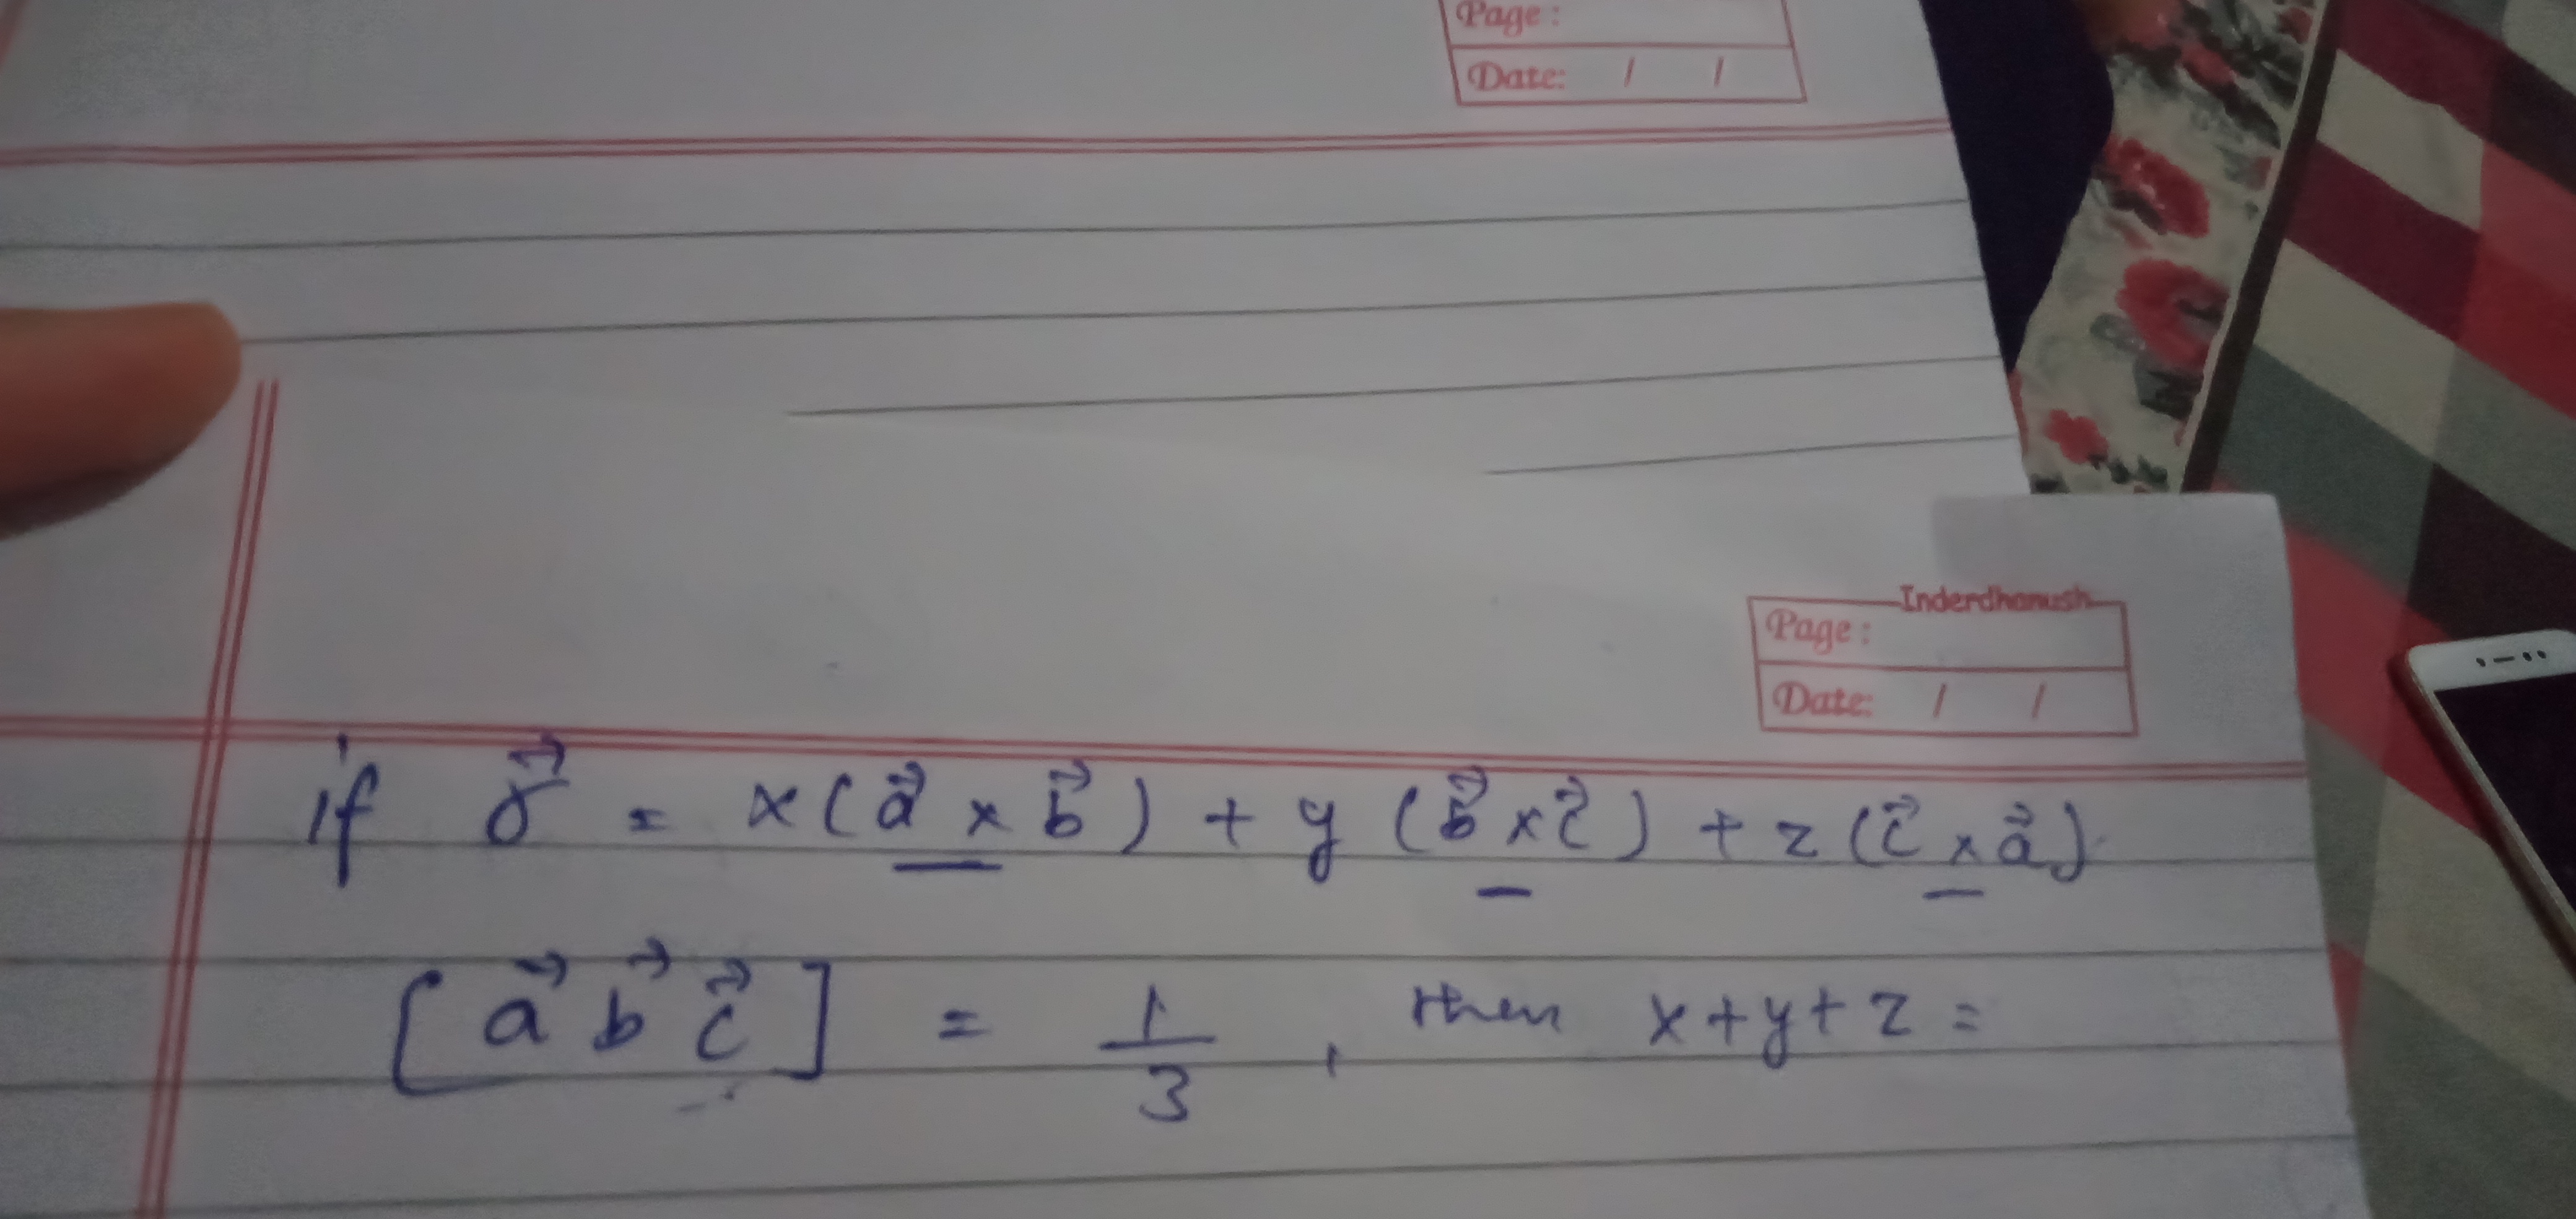 Page :
Date: / /
Inderdhanush
Page :
Date: / /
if r⃗ = x(a⃗ × b⃗) + y(b⃗ × c⃗) + z(c⃗ × a⃗)
[a⃗ b⃗ c⃗] = 1/3, then x+y+z=